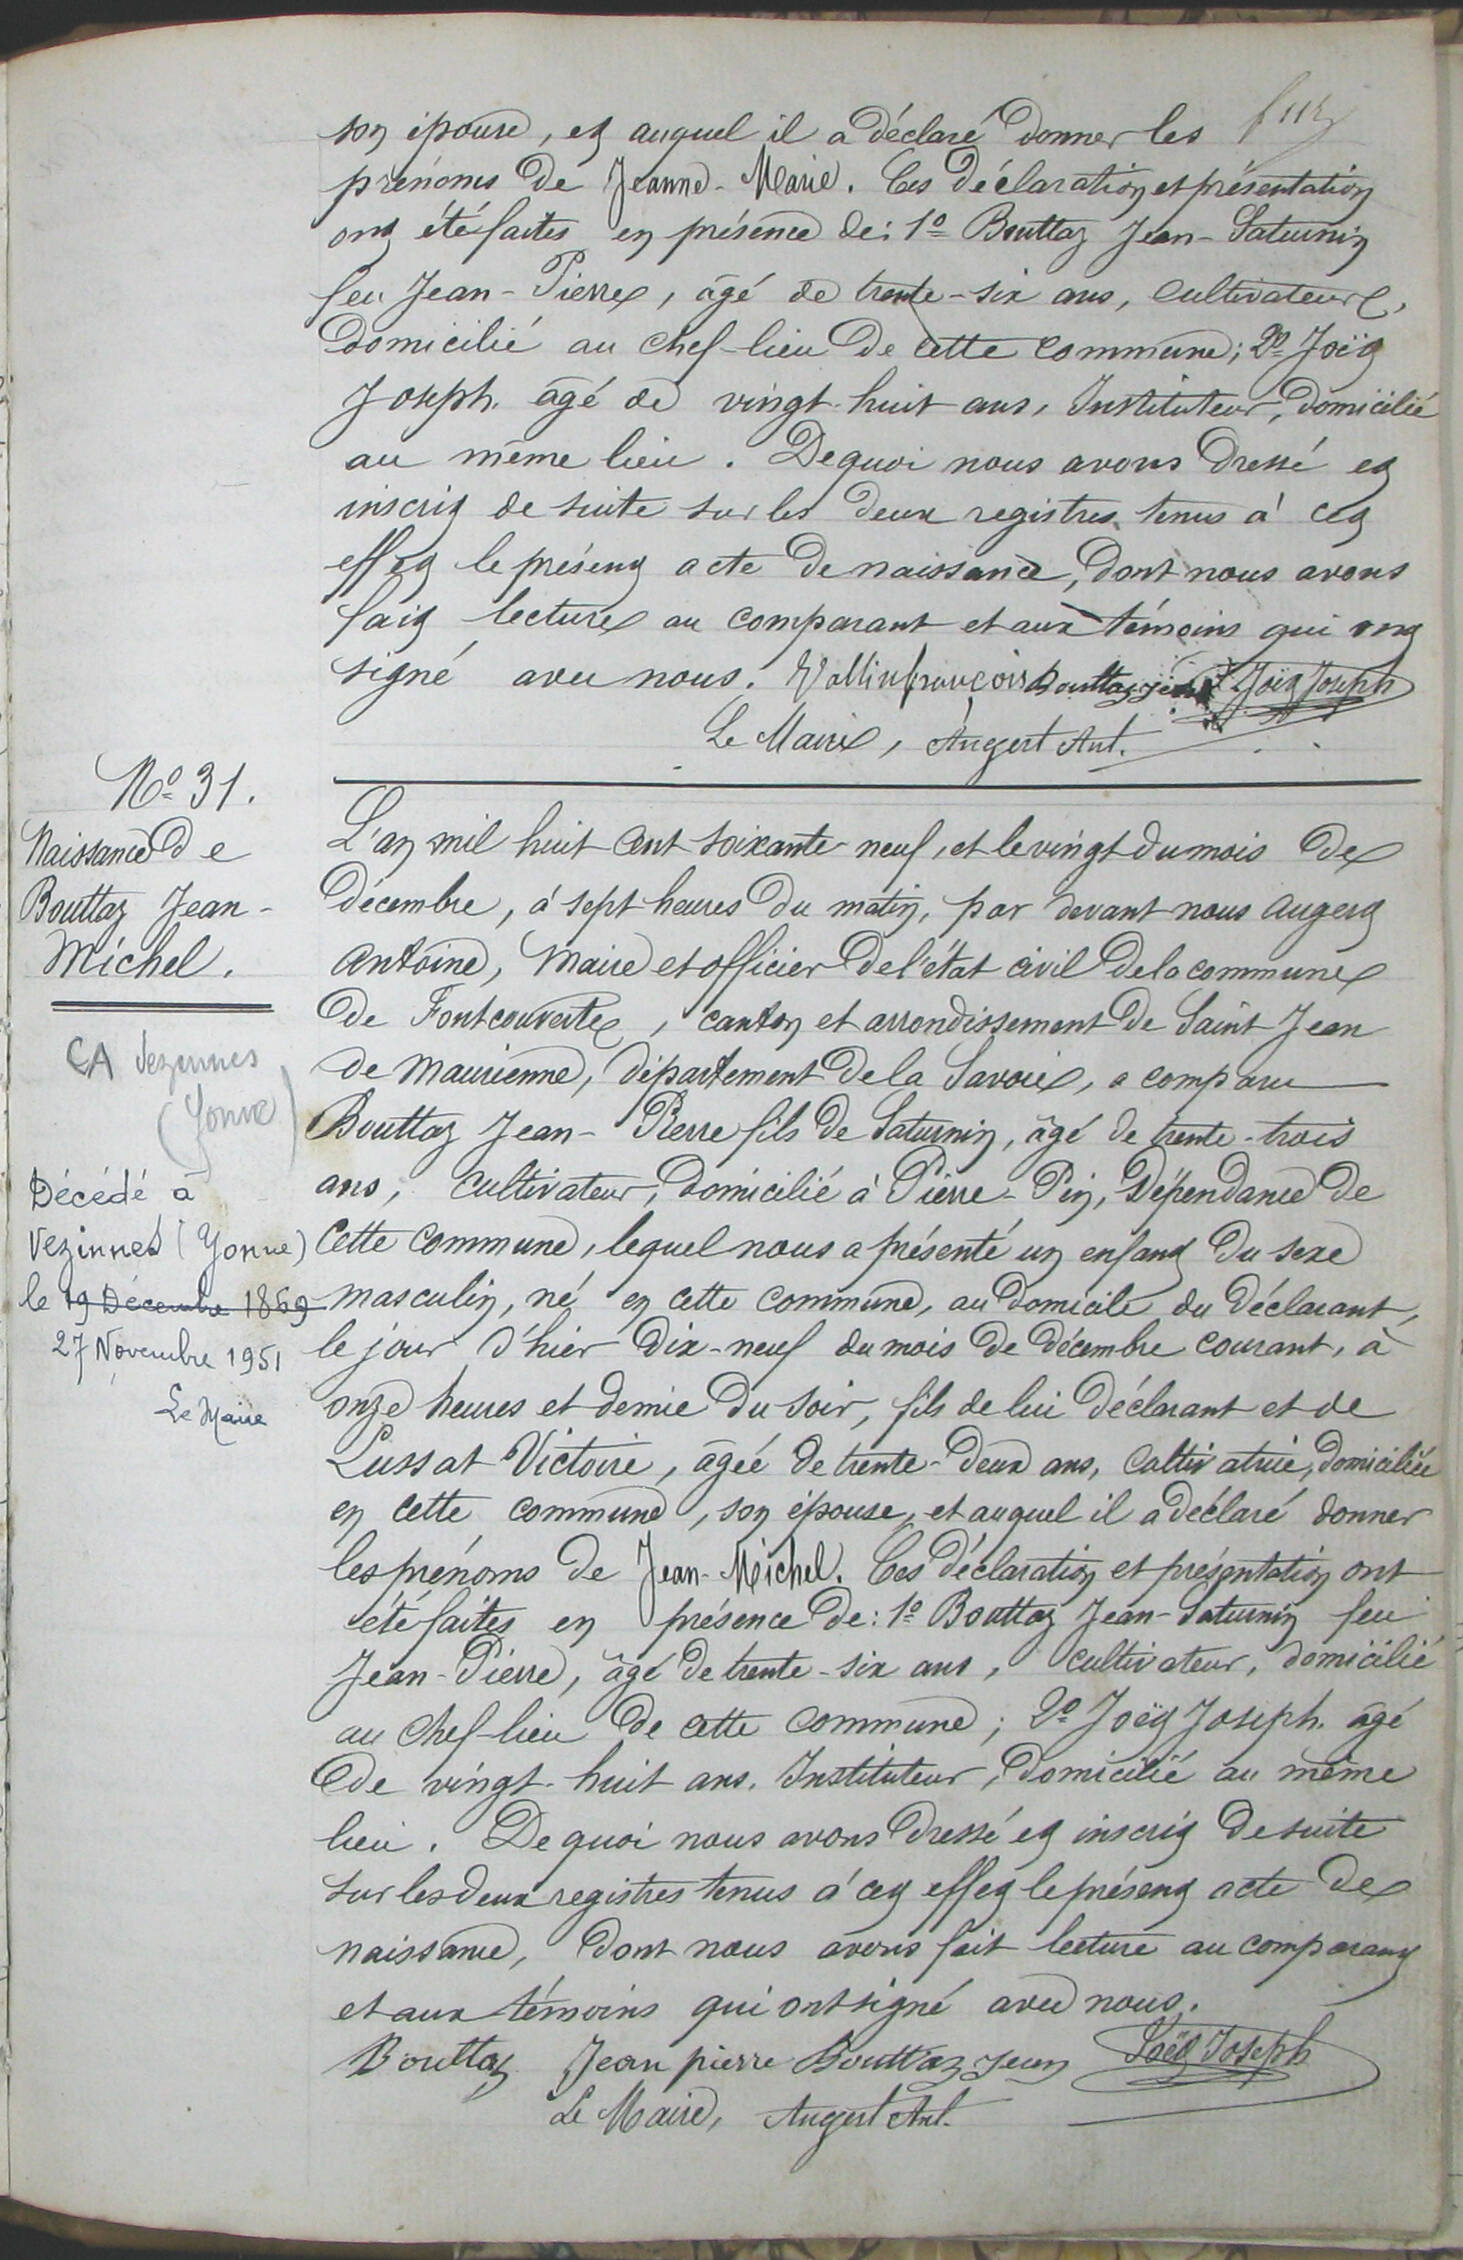 son épouse, et auquel il a déclaré donner les
prénoms de Jeanne-Marie. Ces déclaration et présentation
ont été faites en présence de: 1º Bouttaz Jean-Saturnin
feu Jean-Pierre, âgé de trente-six ans, cultivateur,
domicilié au chef-lieu de cette commune; 2º Joëg
Joseph. âgé de vingt-huit ans, Instituteur, domicilié
au même lieu. De quoi nous avons dressé et
inscrit de suite sur les deux registres tenus à cet
effet le présent acte de naissance, dont nous avons
fait lecture au comparant et aux témoins qui ont
signé avec nous. Vallin françois Bouttaz Jean Joëg Joseph
Le Maire, Augert Ant.
Nº 31.
Naissance de
Bouttaz Jean-
Michel.
CA Vezinnes
(Yonne)
Décédé à
Vezinnes (Yonne)
le 19 Décembre 1869
27 Novembre 1951
Le Maire
L'an mil huit cent soixante-neuf, et le vingt du mois de
décembre, à sept heures du matin, par devant nous Augert
Antoine, Maire et officier de l'état civil de la commune
de Fontcouverte, canton et arrondissement de Saint Jean
de Maurienne, département de la Savoie, a comparu
Bouttaz Jean-Pierre fils de Saturnin, âgé de trente-trois
ans, cultivateur, domicilié à Pierre-Pin, Dépendance de
cette commune, lequel nous a présenté un enfant du sexe
masculin, né en cette commune, au domicile du déclarant,
le jour d'hier dix-neuf du mois de décembre courant, à
onze heures et demie du soir, fils de lui déclarant et de
Lussat Victoire, âgée de trente-deux ans, cultivatrice, domiciliée
en cette commune, son épouse, et auquel il a déclaré donner
les prénoms de Jean-Michel. Ces déclaration et présentation ont
été faites en présence de: 1º Bouttaz Jean-Saturnin feu
Jean-Pierre, âgé de trente-six ans, cultivateur, domicilié
au chef-lieu de cette commune; 2º Joëg Joseph. âgé
de vingt-huit ans. Instituteur, domicilié au même
lieu. De quoi nous avons dressé et inscrit de suite
sur les deux registres tenus à cet effet le présent acte de
naissance, dont nous avons fait lecture au comparant
et aux témoins qui ont signé avec nous.
Bouttaz Jean pierre Bouttaz Jean Joëg Joseph
Le Maire, Augert Ant.